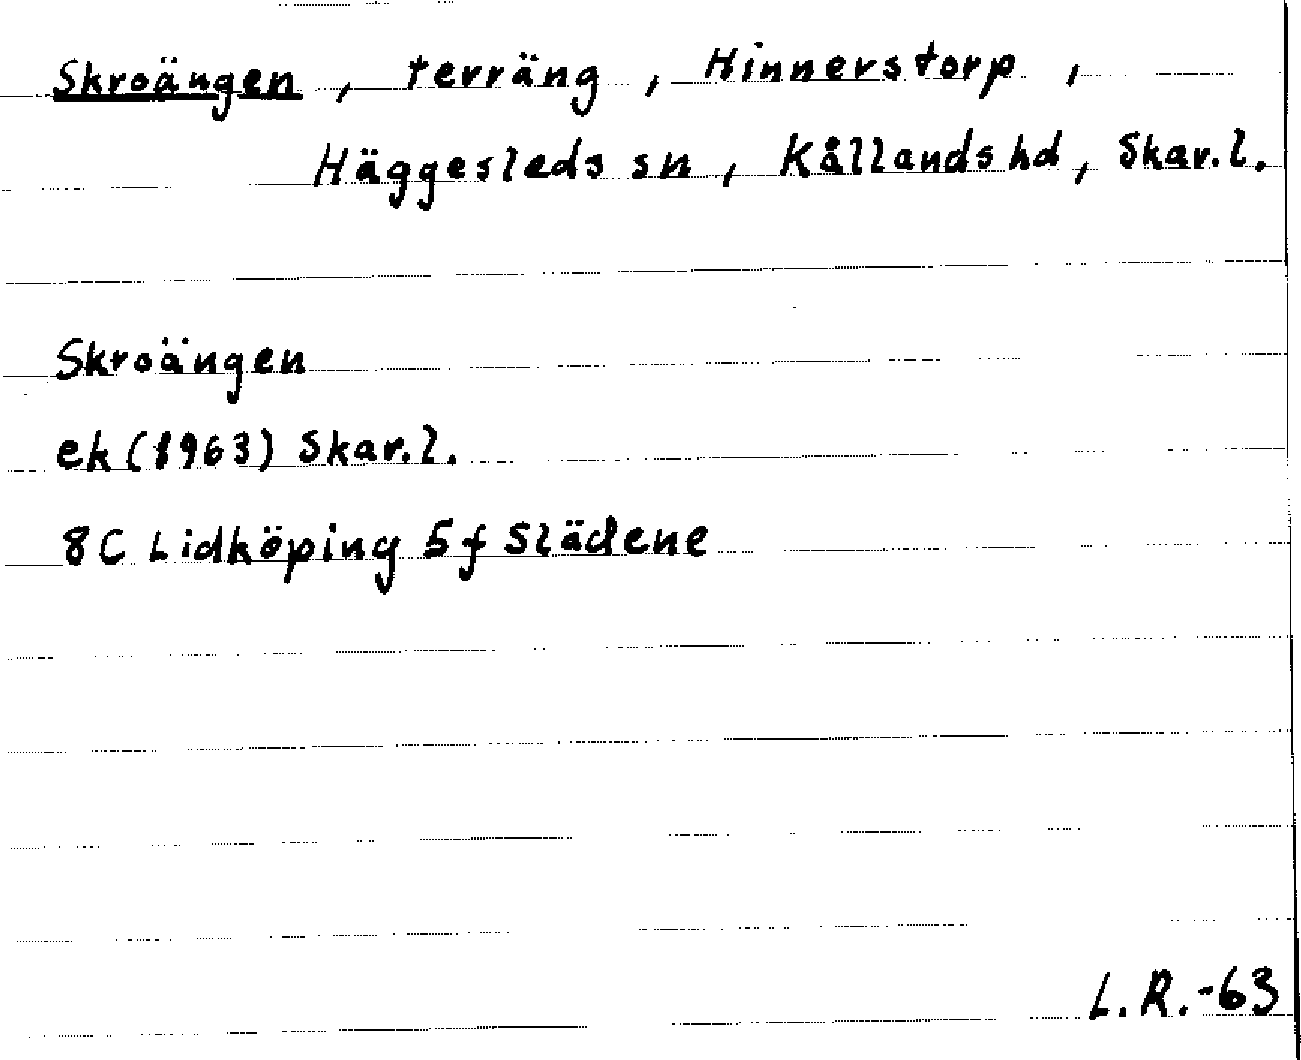 Skroängen, terräng, Hinnerstorp,
Häggesleds sn, Kållands hd, Skar.l.
Skroängen
ek (1963) Skar.l.
8C Lidköping 5f Slädene
L.R.-63